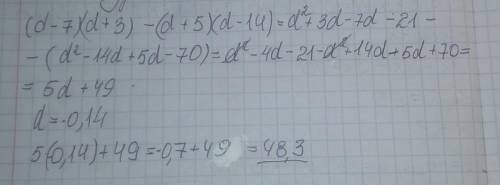 (d-7)(d+3) -(d+5)(d-14)=d²+3d-7d-21-
-(d²-14d+5d-70)=d²-4d-21-d²+14d+5d+70=
= 5d+49
d=-0,14
5(-0,14)+49=-0,7+49 =48,3